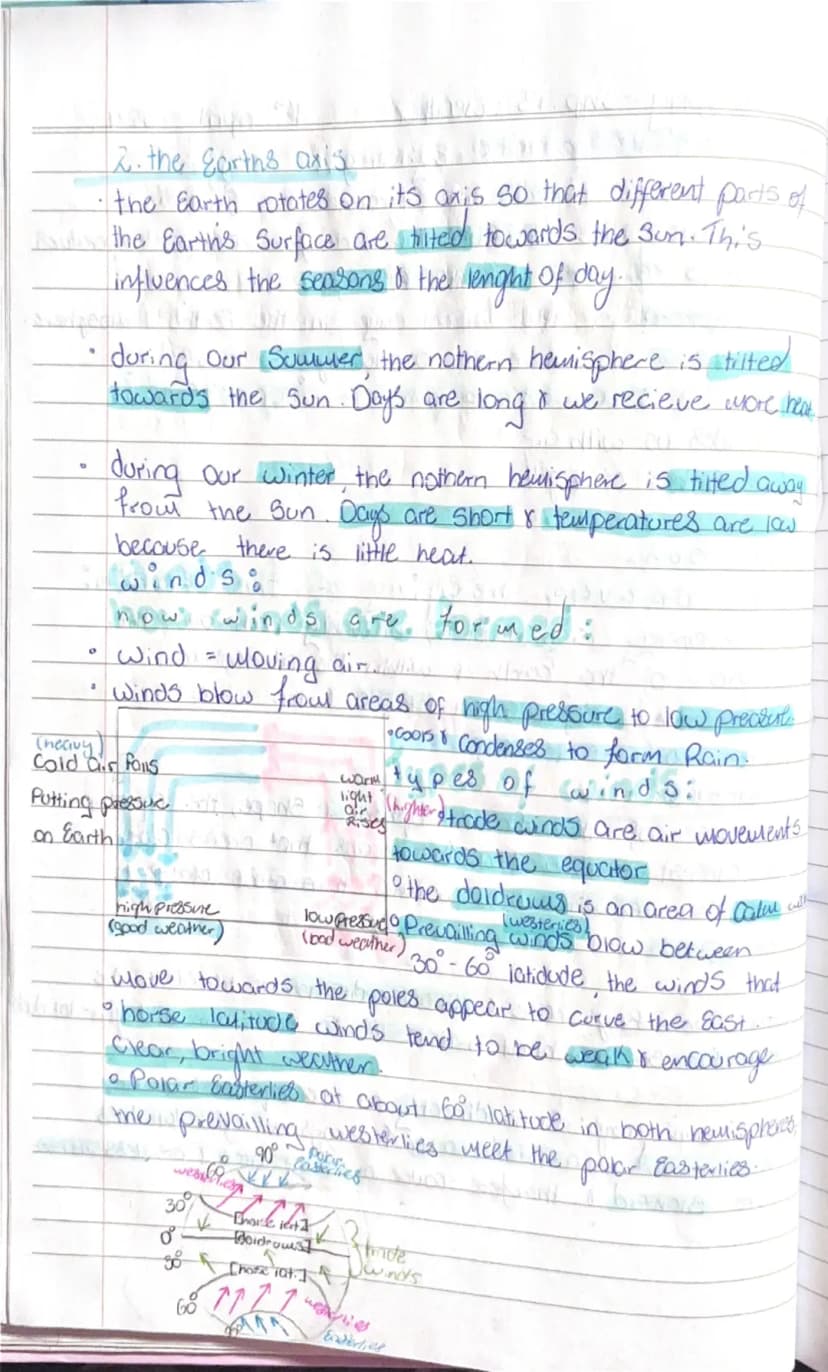 2. the Earths axis
• the Earth rotates on its axis so that different parts of
the Earths Surface are tilted towards the Sun. This
influences the seasons & the lenght of day.
• during our Summer, the nothern hemisphere is tilted
towards the Sun. Days are long & we recieve more heat
• during our winter, the nothern hemisphere is tilted away
from the Sun. Days are short & temperatures are low
because there is little heat.
winds:
how winds are formed:
• wind = moving air
• winds blow from areas of high pressure to low
• cools & condenses to form Rain.
(heavy)
Cold air falls
Putting pressure
on Earth
high pressure
(good weather)
warm
light
air
Rises
(higher)
low pressure
(bad weather)
types of winds:
• trade winds are air movements
towards the equator
• the doldrums is an area of calm
• Prevailling (westerlies) winds blow between
30° - 60° latidude, the winds that
move towards the poles appear to curve the East.
• horse latitude winds tend to be weak & encourage
clear, bright weather.
• Polar Easterlies at about 60° latitude in both hemispheres,
the prevailling westerlies meet the polar Easterlies.
90° Polar
easterlies
westerlies 60°
30°
[horse lat.]
0° [Doldrums]
trade
winds
30° [horse lat.]
60° westerlies
Easterlies